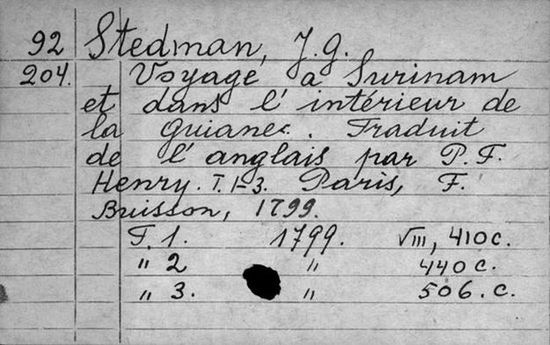 92 Stedman, J.G.
204. Voyage a Surinam
et dans l' intérieur de
la Guiane. Traduit
de l'anglais par P.F.
Henry. T. 1-3. Paris, F.
Buisson, 1799.
T. 1. 1799. VIII, 410 c.
" 2 " 440 c.
" 3. " 506. c.